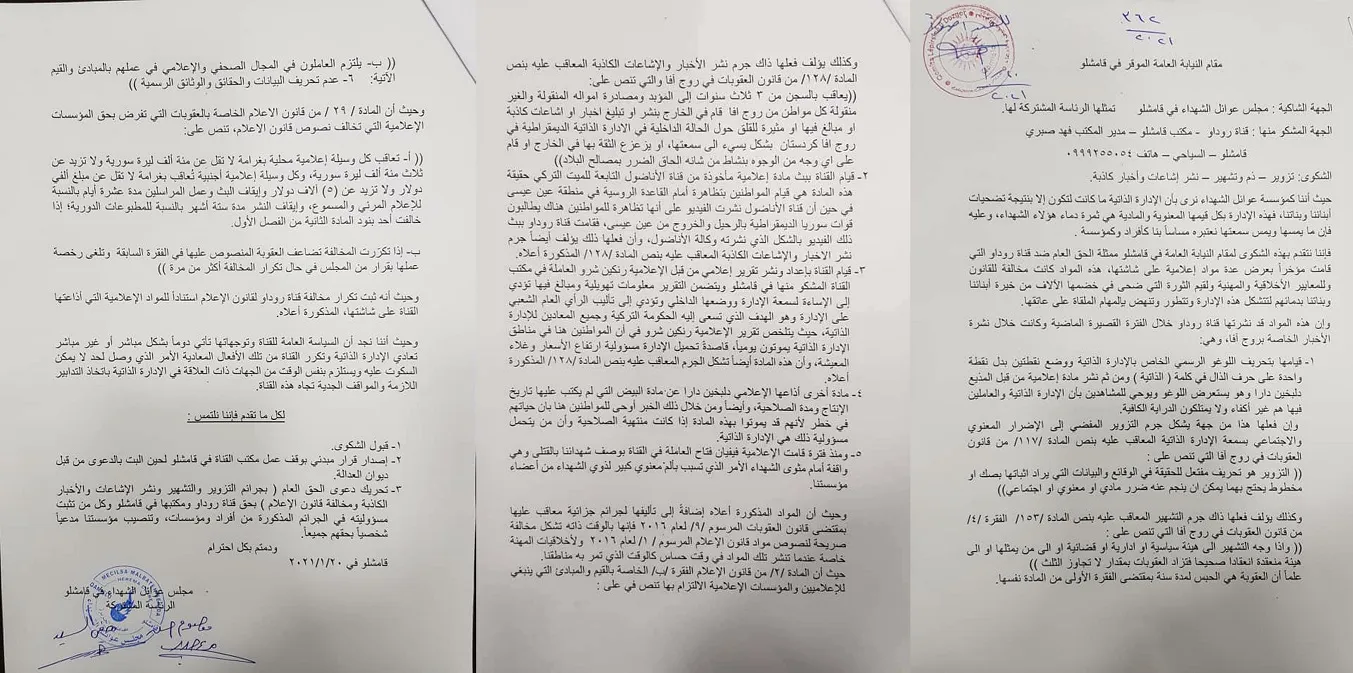 ٣٦٢
٢٠٢١
مقام النيابة العامة الموقر في قامشلو
الجهة الشاكية : مجلس عوائل الشهداء في قامشلو تمثلها الرئاسة المشتركة لها.
الجهة المشكو منها : قناة روداو - مكتب قامشلو – مدير المكتب فهد صبري
قامشلو – السياحي – هاتف ٠٩٩٩٢٥٥٠٥٤
الشكوى: تزوير – ذم وتشهير – نشر إشاعات وأخبار كاذبة.
حيث أننا كمؤسسة عوائل الشهداء نرى بأن الإدارة الذاتية ما كانت لتكون إلا بنتيجة تضحيات
أبنائنا وبناتنا، فهذه الإدارة بكل قيمها المعنوية والمادية هي ثمرة دماء هؤلاء الشهداء، وعليه
فإن ما يمسها ويمس سمعتها نعتبره مساساً بنا كأفراد وكمؤسسة .
فإننا نتقدم بهذه الشكوى لمقام النيابة العامة في قامشلو ممثلة الحق العام ضد قناة روداو والتي
قامت مؤخراً بعرض عدة مواد إعلامية على شاشتها، هذه المواد كانت مخالفة للقانون
وللمعايير الأخلاقية والمهنية ولقيم الثورة التي ضحى في خضمها الآلاف من خيرة أبنائنا
وبناتنا بدمائهم لتتشكل هذه الإدارة وتتطور وتنهض بالمهام الملقاة على عاتقها.
وإن هذه المواد قد نشرتها قناة روداو خلال الفترة القصيرة الماضية وكانت خلال نشرة
الأخبار الخاصة بروج آفا، وهي:
١- قيامها بتحريف اللوغو الرسمي الخاص بالإدارة الذاتية ووضع نقطتين بدل نقطة
واحدة على حرف الذال في كلمة ( الذاتية ) ومن ثم نشر مادة إعلامية من قبل المذيع
دلبخين دارا وهو يستعرض اللوغو ويوحي للمشاهدين بأن الإدارة الذاتية والعاملين
فيها هم غير أكفاء ولا يمتلكون الدراية الكافية.
وإن فعلها هذا من جهة يشكل جرم التزوير المفضي إلى الإضرار المعنوي
والاجتماعي بسمعة الإدارة الذاتية المعاقب عليه بنص المادة /١١٧/ من قانون
العقوبات في روج آفا التي تنص على :
(( التزوير هو تحريف مفتعل للحقيقة في الوقائع والبيانات التي يراد اثباتها بصك او
مخطوط يحتج بهما يمكن ان ينجم عنه ضرر مادي او معنوي او اجتماعي))
وكذلك يؤلف فعلها ذاك جرم التشهير المعاقب عليه بنص المادة /١٥٣/ الفقرة /٤/
من قانون العقوبات في روج آفا التي تنص على :
(( وإذا وجه التشهير الى هيئة سياسية او ادارية او قضائية او الى من يمثلها او الى
هيئة منعقدة انعقادا صحيحا فتزاد العقوبات بمقدار لا تجاوز الثلث ))
علماً أن العقوبة هي الحبس لمدة سنة بمقتضى الفقرة الأولى من المادة نفسها.
وكذلك يؤلف فعلها ذاك جرم نشر الأخبار والإشاعات الكاذبة المعاقب عليه بنص
المادة /١٢٨/ من قانون العقوبات في روج آفا والتي تنص على:
((يعاقب بالسجن من ٣ ثلاث سنوات إلى المؤبد ومصادرة امواله المنقولة والغير
منقولة كل مواطن من روج افا قام في الخارج بنشر او تبليغ اخبار او اشاعات كاذبة
او مبالغ فيها او مثيرة للقلق حول الحالة الداخلية في الادارة الذاتية الديمقراطية في
روج افا كردستان بشكل يسيء الى سمعتها، او يزعزع الثقة بها في الخارج او قام
على اي وجه من الوجوه بنشاط من شانه الحاق الضرر بمصالح البلاد))
٢- قيام القناة ببث مادة إعلامية مأخوذة من قناة الأناضول التابعة للميت التركي حقيقة
هذه المادة هي قيام المواطنين بتظاهرة أمام القاعدة الروسية في منطقة عين عيسى
في حين أن قناة الأناضول نشرت الفيديو على أنها تظاهرة للمواطنين هناك يطالبون
قوات سوريا الديمقراطية بالرحيل والخروج من عين عيسى، فقامت قناة روداو ببث
ذلك الفيديو بالشكل الذي نشرته وكالة الأناضول، وأن فعلها ذلك يؤلف أيضاً جرم
نشر الاخبار والإشاعات الكاذبة المعاقب عليه بنص المادة /١٢٨/ المذكورة أعلاه.
٣- قيام القناة بإعداد ونشر تقرير إعلامي من قبل الإعلامية رنكين شرو العاملة في مكتب
القناة المشكو منها في قامشلو ويتضمن التقرير معلومات تهويلية ومبالغ فيها تؤدي
إلى الإساءة لسمعة الإدارة ووضعها الداخلي وتؤدي إلى تأليب الرأي العام الشعبي
على الإدارة وهو الهدف الذي تسعى إليه الحكومة التركية وجميع المعادين للإدارة
الذاتية، حيث يتلخص تقرير الإعلامية رنكين شرو في أن المواطنين هنا في مناطق
الإدارة الذاتية يموتون يومياً، قاصدةً تحميل الإدارة مسؤولية ارتفاع الأسعار وغلاء
المعيشة، وأن هذه المادة أيضاً تشكل الجرم المعاقب عليه بنص المادة /١٢٨/ المذكورة
أعلاه.
٤- مادة أخرى أذاعها الإعلامي دلبخين دارا عن مادة البيض التي لم يكتب عليها تاريخ
الإنتاج ومدة الصلاحية، وأيضاً ومن خلال ذلك الخبر أوحى للمواطنين هنا بان حياتهم
في خطر لأنهم قد يموتوا بهذه المادة إذا كانت منتهية الصلاحية وأن من يتحمل
مسؤولية ذلك هي الإدارة الذاتية.
٥- ومنذ فترة قامت الإعلامية فيفيان فتاح العاملة في القناة بوصف شهدائنا بالقتلى وهي
واقفة أمام مثوى الشهداء الأمر الذي تسبب بألم معنوي كبير لذوي الشهداء من أعضاء
مؤسستنا.
وحيث أن المواد المذكورة أعلاه إضافةً إلى تأليفها لجرائم جزائية معاقب عليها
بمقتضى قانون العقوبات المرسوم /٩/ لعام ٢٠١٦ فإنها بالوقت ذاته تشكل مخالفة
صريحة لنصوص مواد قانون الإعلام المرسوم / ١/ لعام ٢٠١٦ ولأخلاقيات المهنة
خاصة عندما تنشر تلك المواد في وقت حساس كالوقت الذي تمر به مناطقنا.
حيث أن المادة /٢/ من قانون الإعلام الفقرة /ب/ الخاصة بالقيم والمبادئ التي ينبغي
للإعلاميين والمؤسسات الإعلامية الالتزام بها تنص في على :
(( ب- يلتزم العاملون في المجال الصحفي والإعلامي في عملهم بالمبادئ والقيم
الآتية: ٦- عدم تحريف البيانات والحقائق والوثائق الرسمية ))
وحيث أن المادة / ٢٩ / من قانون الاعلام الخاصة بالعقوبات التي تفرض بحق المؤسسات
الإعلامية التي تخالف نصوص قانون الاعلام، تنص على:
(( أ- تعاقب كل وسيلة إعلامية محلية بغرامة لا تقل عن مئة ألف ليرة سورية ولا تزيد عن
ثلاث مئة ألف ليرة سورية، وكل وسيلة إعلامية أجنبية تُعاقب بغرامة لا تقل عن مبلغ ألفي
دولار ولا تزيد عن (٥) آلاف دولار وإيقاف البث وعمل المراسلين مدة عشرة أيام بالنسبة
للإعلام المرئي والمسموع، وإيقاف النشر مدة ستة أشهر بالنسبة للمطبوعات الدورية؛ إذا
خالفت أحد بنود المادة الثانية من الفصل الأول.
ب- إذا تكررت المخالفة تضاعف العقوبة المنصوص عليها في الفقرة السابقة وتلغى رخصة
عملها بقرار من المجلس في حال تكرار المخالفة أكثر من مرة ))
وحيث أنه ثبت تكرار مخالفة قناة روداو لقانون الإعلام استناداً للمواد الإعلامية التي أذاعتها
القناة على شاشتها، المذكورة أعلاه.
وحيث أننا نجد أن السياسة العامة للقناة وتوجهاتها تأتي دوماً بشكل مباشر أو غير مباشر
تعادي الإدارة الذاتية وتكرر القناة من تلك الأفعال المعادية الأمر الذي وصل لحد لا يمكن
السكوت عليه ويستلزم بنفس الوقت من الجهات ذات العلاقة في الإدارة الذاتية باتخاذ التدابير
اللازمة والمواقف الجدية تجاه هذه القناة.
لكل ما تقدم فإننا نلتمس :
١- قبول الشكوى.
٢- إصدار قرار مبدئي بوقف عمل مكتب القناة في قامشلو لحين البت بالدعوى من قبل
ديوان العدالة.
٣- تحريك دعوى الحق العام ( بجرائم التزوير والتشهير ونشر الإشاعات والأخبار
الكاذبة ومخالفة قانون الإعلام ) بحق قناة روداو ومكتبها في قامشلو وكل من تثبت
مسؤوليته في الجرائم المذكورة من أفراد ومؤسسات، وتنصيب مؤسستنا مدعياً
شخصياً بحقهم جميعاً.
ودمتم بكل احترام
قامشلو في ٢٠٢١/١/٢٠
مجلس عوائل الشهداء في قامشلو
الرئاسة المشتركة